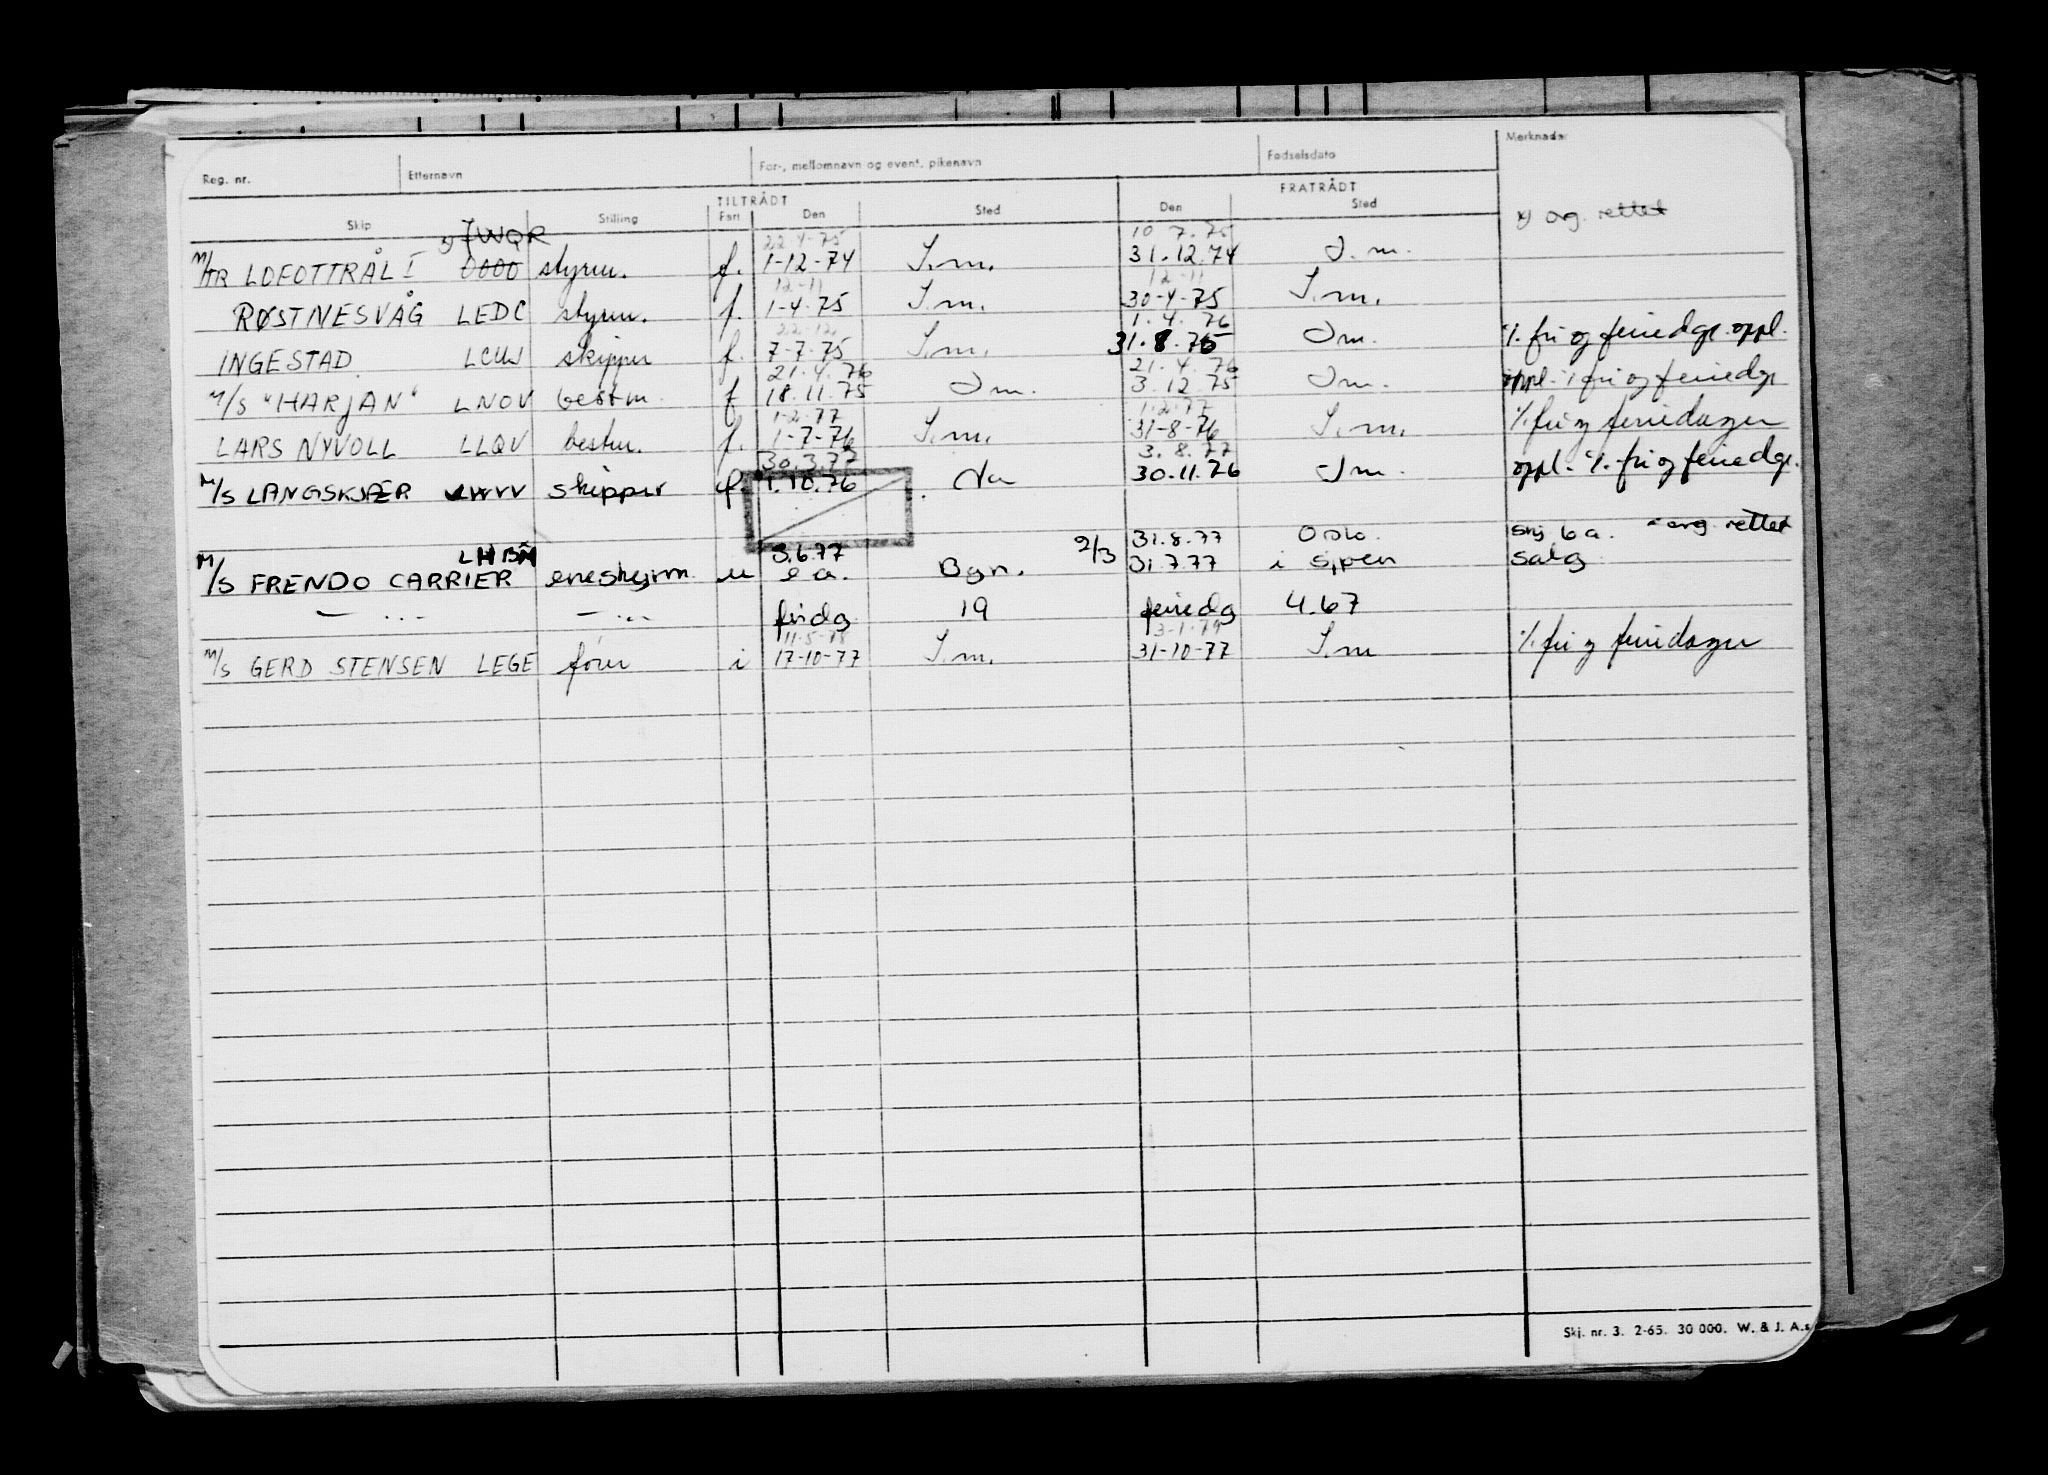 Reg. nr. Etternavn For-, mellomnavn og event. pikenavn Fødselsdato Merknader
TILTRÅDT FRATRÅDT
Skip Stilling Fart Den Sted Den Sted
x) org. rettet
x) JWQR 22.4-75 10 7.75
M/TR LOFOTTRÅL I OOOO styrm. f. 1-12-74 S.m. 31.12.74 S.m.
12-11 12-11
RØSTNESVÅG LEDC styrm. f. 1-4-75 S.m. 30-4-75 S.m.
22-12 1.4.76
INGESTAD LCUW skipper f. 7-7-75 S.m. 31.8.75 Sm. ./. fri og feriedgr. oppl.
21.4.76 21.4.76
M/S "HARJAN" LNOV bestm. f 18.11.75 Sm. 3.12.75 Sm. oppl. ./. fri og feriedgr
1-2-77 1.2.77
LARS NYVOLL LLQV bestm. f. 1-7-76 S.m. 31-8-76 S.m. ./. fri og feriedager
30.3.77 3.8.77
M/S LANGSKJÆR skipper f. 1.10.76 30.11.76 Sm. oppl. ./. fri og feriedgr.
LHBM 3.6.77 2/3 31.8.77 Oslo. skj 6a. org. rettet
M/S FRENDO CARRIER eneskejrm u e a. Bgn. 31.7.77 i sjøen salg
— . . . — . . . fridg 19 feriedg 4.67
11-5-78 3-1-79
M/S GERD STENSEN LEGE fører i 17-10-77 S.m. 31-10-77 S.m ./. fri og feriedager
Skj. nr. 3. 2-65. 30 000. W. & J. A.s